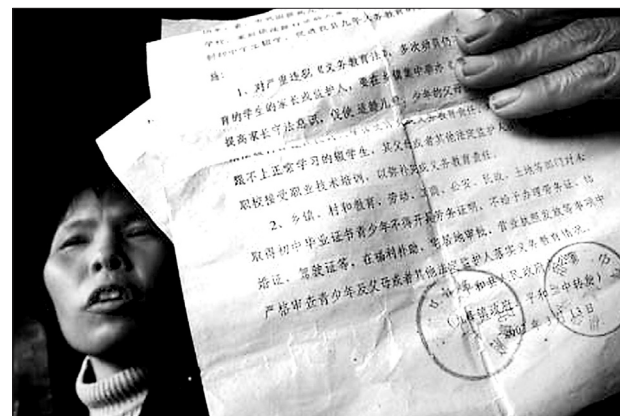 1、对严重违犯《义务教育法》，多次动员仍
育的学生的家长或监护人，要在乡镇集中举办《
提高家长守法意识，促使适龄儿童、少年的父母
跟不上正常学习的辍学生，其父母或者其他法定监护人
职校接受职业技术培训，以弥补完成义务教育责任。
2、乡镇、村和教育、劳动、工商、公安、民政、土地等部门对未
取得初中毕业证书青少年不得开具劳务证明，不给予办理劳务证、结
婚证、驾驶证等，在福利补助、宅基地审批、营业执照发放等事项中
严格审查青少年及父母或者其他法定监护人落实义务教育情况。
平和县人民政府
镇政府、平和 中转发）
2007年3月13日